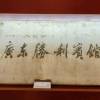 廣東勝利賓館